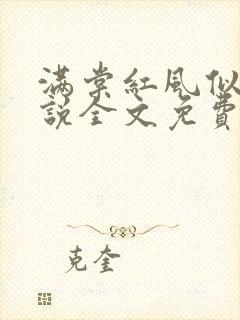 满棠红风似
说全文免费
克奎